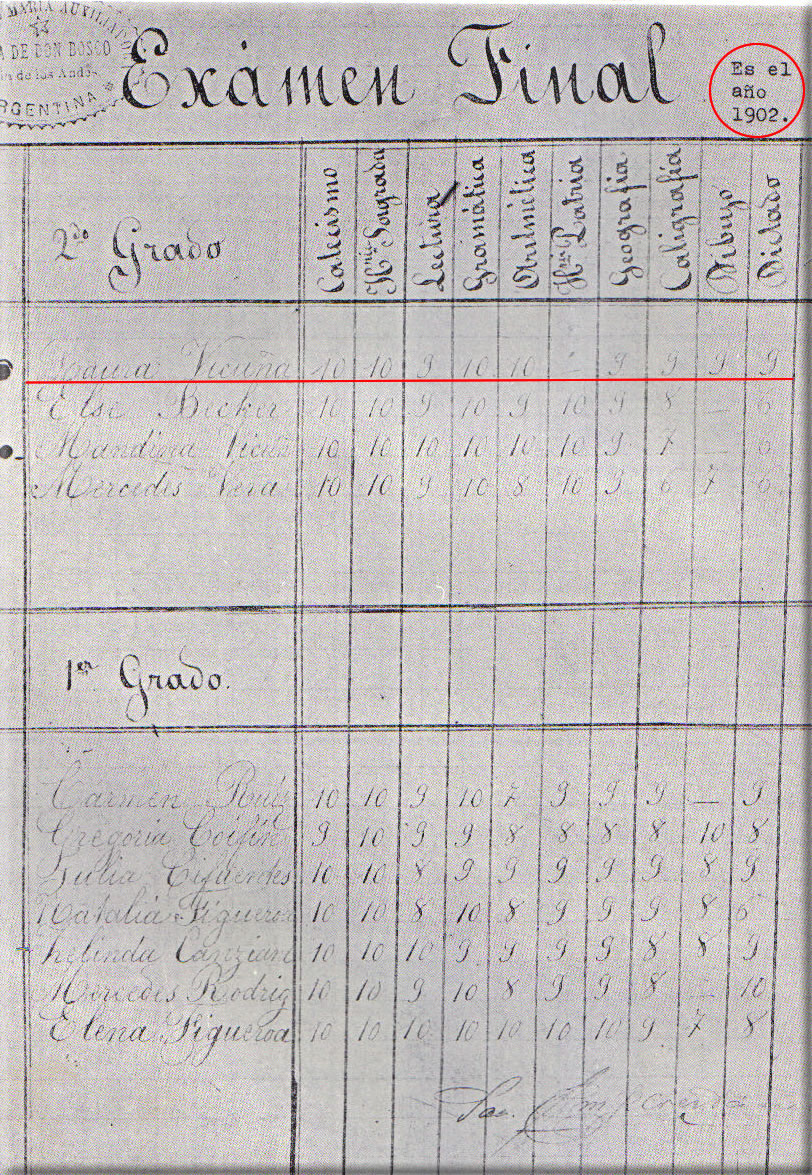 MARIA AUXILIADORA
DE DON BOSCO
de los Andes
ARGENTINA
Exámen Final
Es el
año
1902.
2do Grado
Catecismo
Hria Sagrada
Lectura
Gramática
Aritmética
Hria Patria
Geografía
Caligrafía
Dibujo
Dictado
Laura Vicuña 10 10 9 10 10 – 9 9 9 9
Else Becker 10 10 9 10 9 10 9 8 — 6
Mandina Vicuñ 10 10 10 10 10 10 9 7 — 6
Mercedes Vera 10 10 9 10 8 10 9 6 7 6
1er Grado.
Carmen Ruiz 10 10 9 10 7 9 9 9 — 9
Gregoria 9 10 9 9 8 8 8 8 10 8
Julia Cifuentes 10 10 8 9 9 9 9 9 8 9
Natalia Figueroa 10 10 8 10 8 9 9 9 8 6
helinda Canzian 10 10 10 9 9 9 9 8 8 9
Mercedes Rodrig 10 10 9 10 8 9 9 8 – 10
Elena Figueroa 10 10 10 10 10 10 10 9 7 8